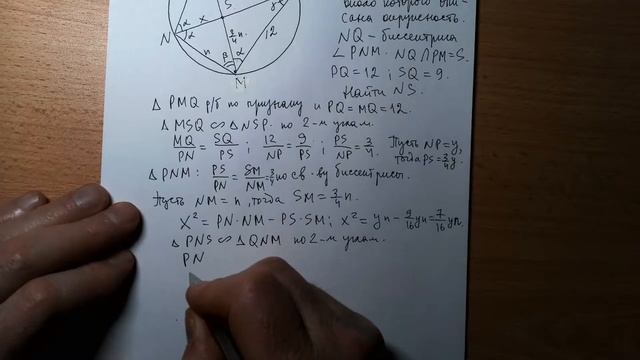 около которого опи-
сана окружность.
NQ - биссектриса
∠ PNM. NQ ∩ PM = S.
PQ = 12 ; SQ = 9.
Найти NS.
S
x
α
α
N
n
3/4 n.
12
β
α
M
Δ PMQ р/б по признаку и PQ = MQ = 12.
Δ MSQ ∽ Δ NSP. по 2-м углам.
MQ/PN = SQ/PS ; 12/NP = 9/PS ; PS/NP = 3/4. Пусть NP = y, тогда PS = 3/4 y.
Δ PNM: PS/PN = SM/NM = 3/4 по св-ву биссектрисы.
Пусть NM = n, тогда SM = 3/4 n.
X² = PN · NM - PS · SM ; X² = yn - 9/16 yn = 7/16 yn.
Δ PNS ∽ Δ QNM по 2-м углам.
PN